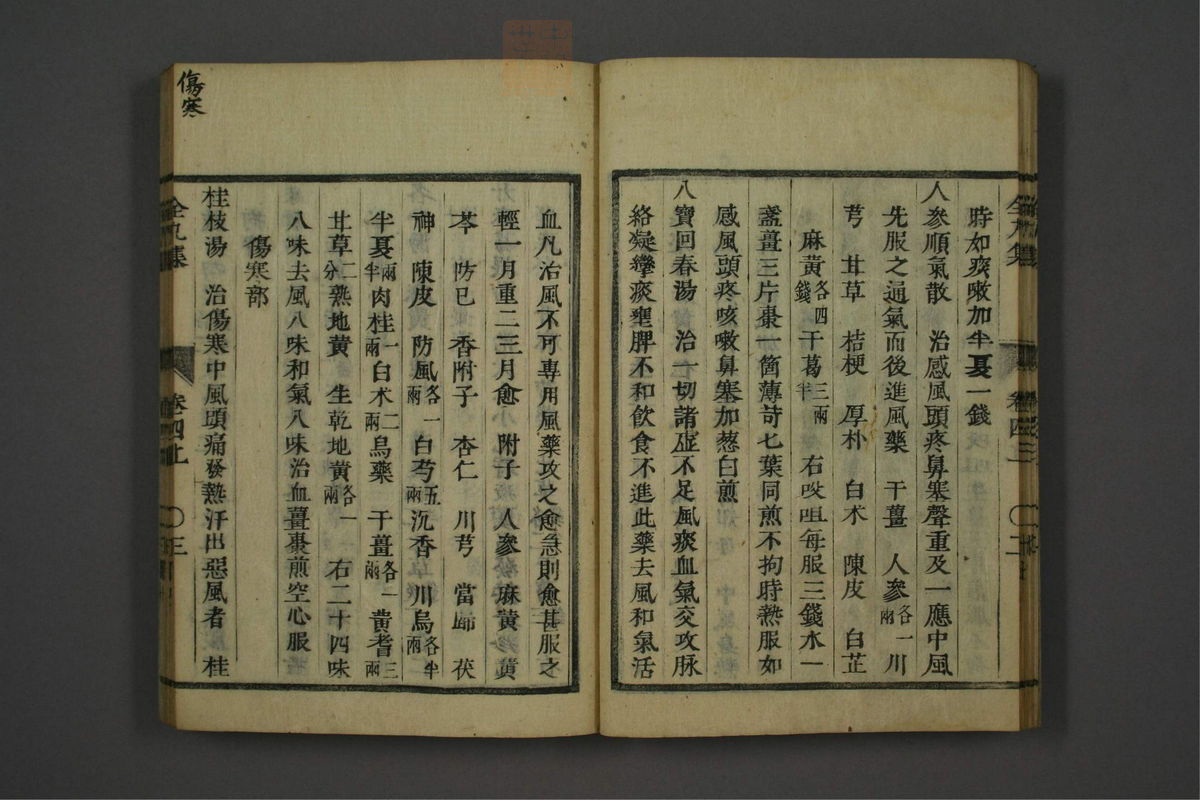 時如痰嗽加半夏一錢
人參順氣散　治感風頭疼鼻塞聲重及一應中風
先服之通氣而後進風藥　干薑　人參各一兩　川
芎　甘草　桔梗　厚朴　白术　陳皮　白芷
麻黃各四錢　干葛三兩半　右㕮咀每服三錢水一
盞薑三片棗一箇薄苛七葉同煎不拘時熱服如
感風頭疼咳嗽鼻塞加葱白煎
八寶回春湯　治一切諸虛不足風痰血氣交攻脉
絡凝攣痰壅脾不和飲食不進此藥去風和氣活
血凡治風不可專用風藥攻之愈急則愈甚服之
輕一月重二三月愈　附子　人參　麻黃　黃
芩　防已　香附子　杏仁　川芎　當歸　茯
神　陳皮　防風各一兩　白芍五兩　沉香　川烏各半兩
半夏兩半　肉桂一兩　白术二兩　烏藥　干薑各一兩　黃耆三兩
甘草二分　熟地黃　生乾地黃各一兩　右二十四味
八味去風八味和氣八味治血薑棗煎空心服
傷寒部
桂枝湯　治傷寒中風頭痛發熱汗出惡風者　桂
傷寒
全九集
卷四上
〇三